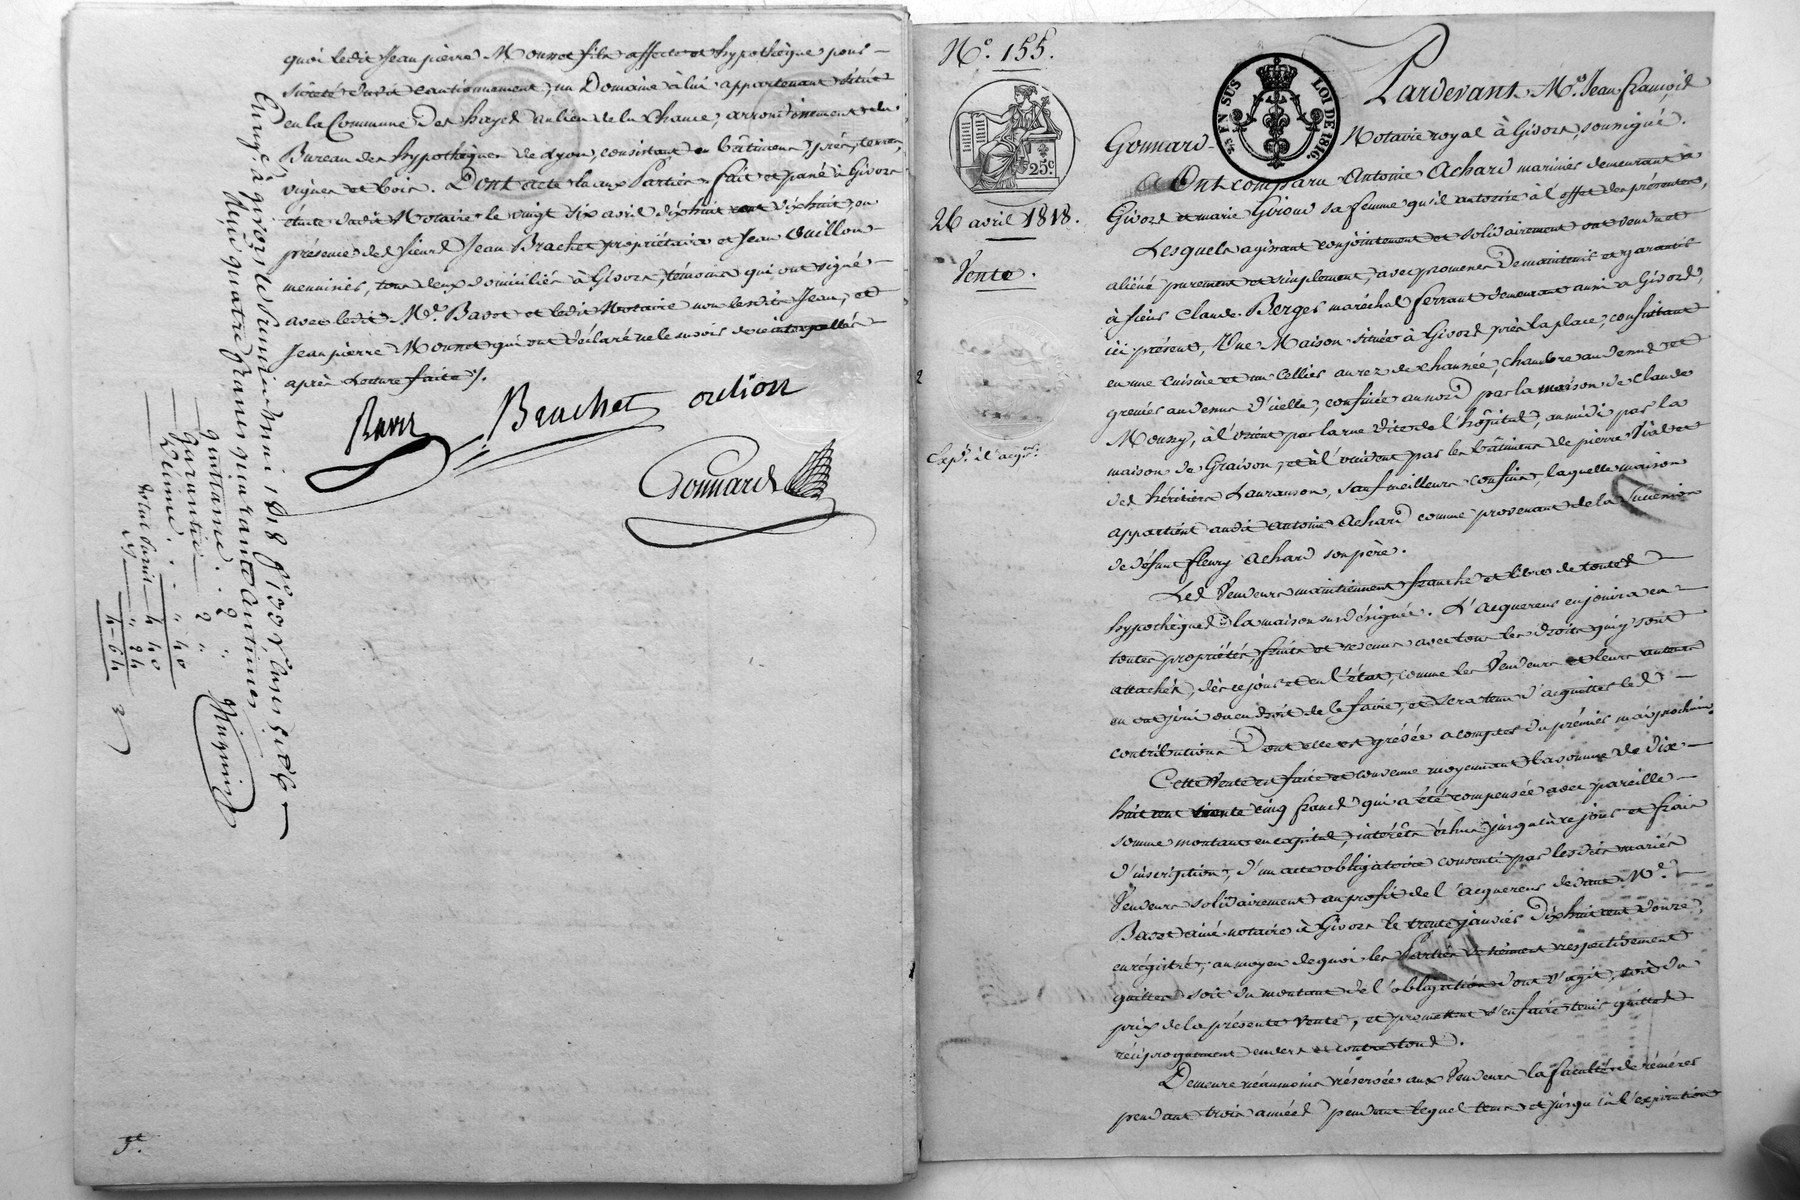 quoi ledit Jean pierre Monnot fils affecte et hypothèque pour
sureté dudit cautionnement, un Domaine à lui appartenant situé
en la Commune des hayes au lieu de la Chance, arrondissement du
Bureau des hypothèques de Lyon, consistant en bâtiments, prés, terres,
vignes et bois. Dont acte lu aux Parties, fait et passé à Givors
étude dudit Notaire le vingt six avril dixhuit cent dixhuit, en
présence des sieurs Jean Brachet propriétaire et Jean Ouillon
menuisier, tous deux domiciliés à Givors, témoins qui ont signé
avec ledit Me. Bavot et ledit Notaire non lesdits Jean, et
Jean pierre Monnot qui ont déclaré ne le savoir de ce interpellés
après Lecture faite ./.
Brachet oulion
Gonnard
Enreg. à givors le 1818
Reçu quatre francs quarante centimes
quittance . 2 "
Garantie 2 "
" 40
4 40
" 44
5e.
No. 155.
25c.
26 avril 1818.
Vente.
EN SUS
LOI DE 1816.
Pardevant Me. Jean François
Gonnard Notaire royal à Givors, soussigné.
Ont comparu Antoine Achard marinier demeurant à
Givors et marie Giroud sa femme qu'il autorise à l'effet des présentes,
Lesquels agissant conjointement et solidairement ont vendu et
aliéné purement et simplement, avec promesse de maintenir et garantir
à sieur Claude Berger maréchal ferrant demeurant aussi à Givors,
ici présent, Une Maison située à Givors près la place, consistant
en une cuisine et un cellier au rez de chaussée, chambre au dessus et
grenier au dessus d'icelle, confinée au nord par la maison de Claude
Mouny, à l'orient par la rue dite de l'hôpital, au midi par la
maison de Graison, et à l'occident par les bâtiments de pierre Vial et
des héritiers Lauranson, sauf meilleurs confins, laquelle maison
appartient audit Antoine Achard comme provenant de la succession
de défunt fleury Achard son père.
Les Vendeurs maintiennent franche et libre de toutes
hypothèques la maison sus désignée. L'acquereur en jouira en
toutes propriétés, fruits et revenus avec tous les droits qui y sont
attachés, dès ce jour et en l'état, comme les Vendeurs et leurs auteurs
en ont joui ou eu droit de le faire, et sera tenu d'acquitter les
contributions dont elle est grévée à compter du prémier mai prochain.
Cette Vente est faite et convenue moyennant la somme de dix
huit cent trente cinq francs qui a été compensée avec pareille
somme montant en capital, intérêts échus jusqu'à ce jour et frais
d'inscription, d'un acte obligatoire consenti par lesdits mariés
Vendeurs solidairement au profit de l'acquereur devant Me.
Bavot ainé notaire à Givors le trente janvier dixhuit cent douze,
enrégistré, au moyen de quoi les Parties se tiennent respectivement
quittes soit du montant de l'obligation dont s'agit, soit du
prix de la présente vente, et promettent s'en faire tenir quittes
réciproquement envers et contre tous.
Demeure néanmoins réservée aux Vendeurs la faculté de réméré
pendant trois années pendant lequel tems et jusqu'à l'expiration